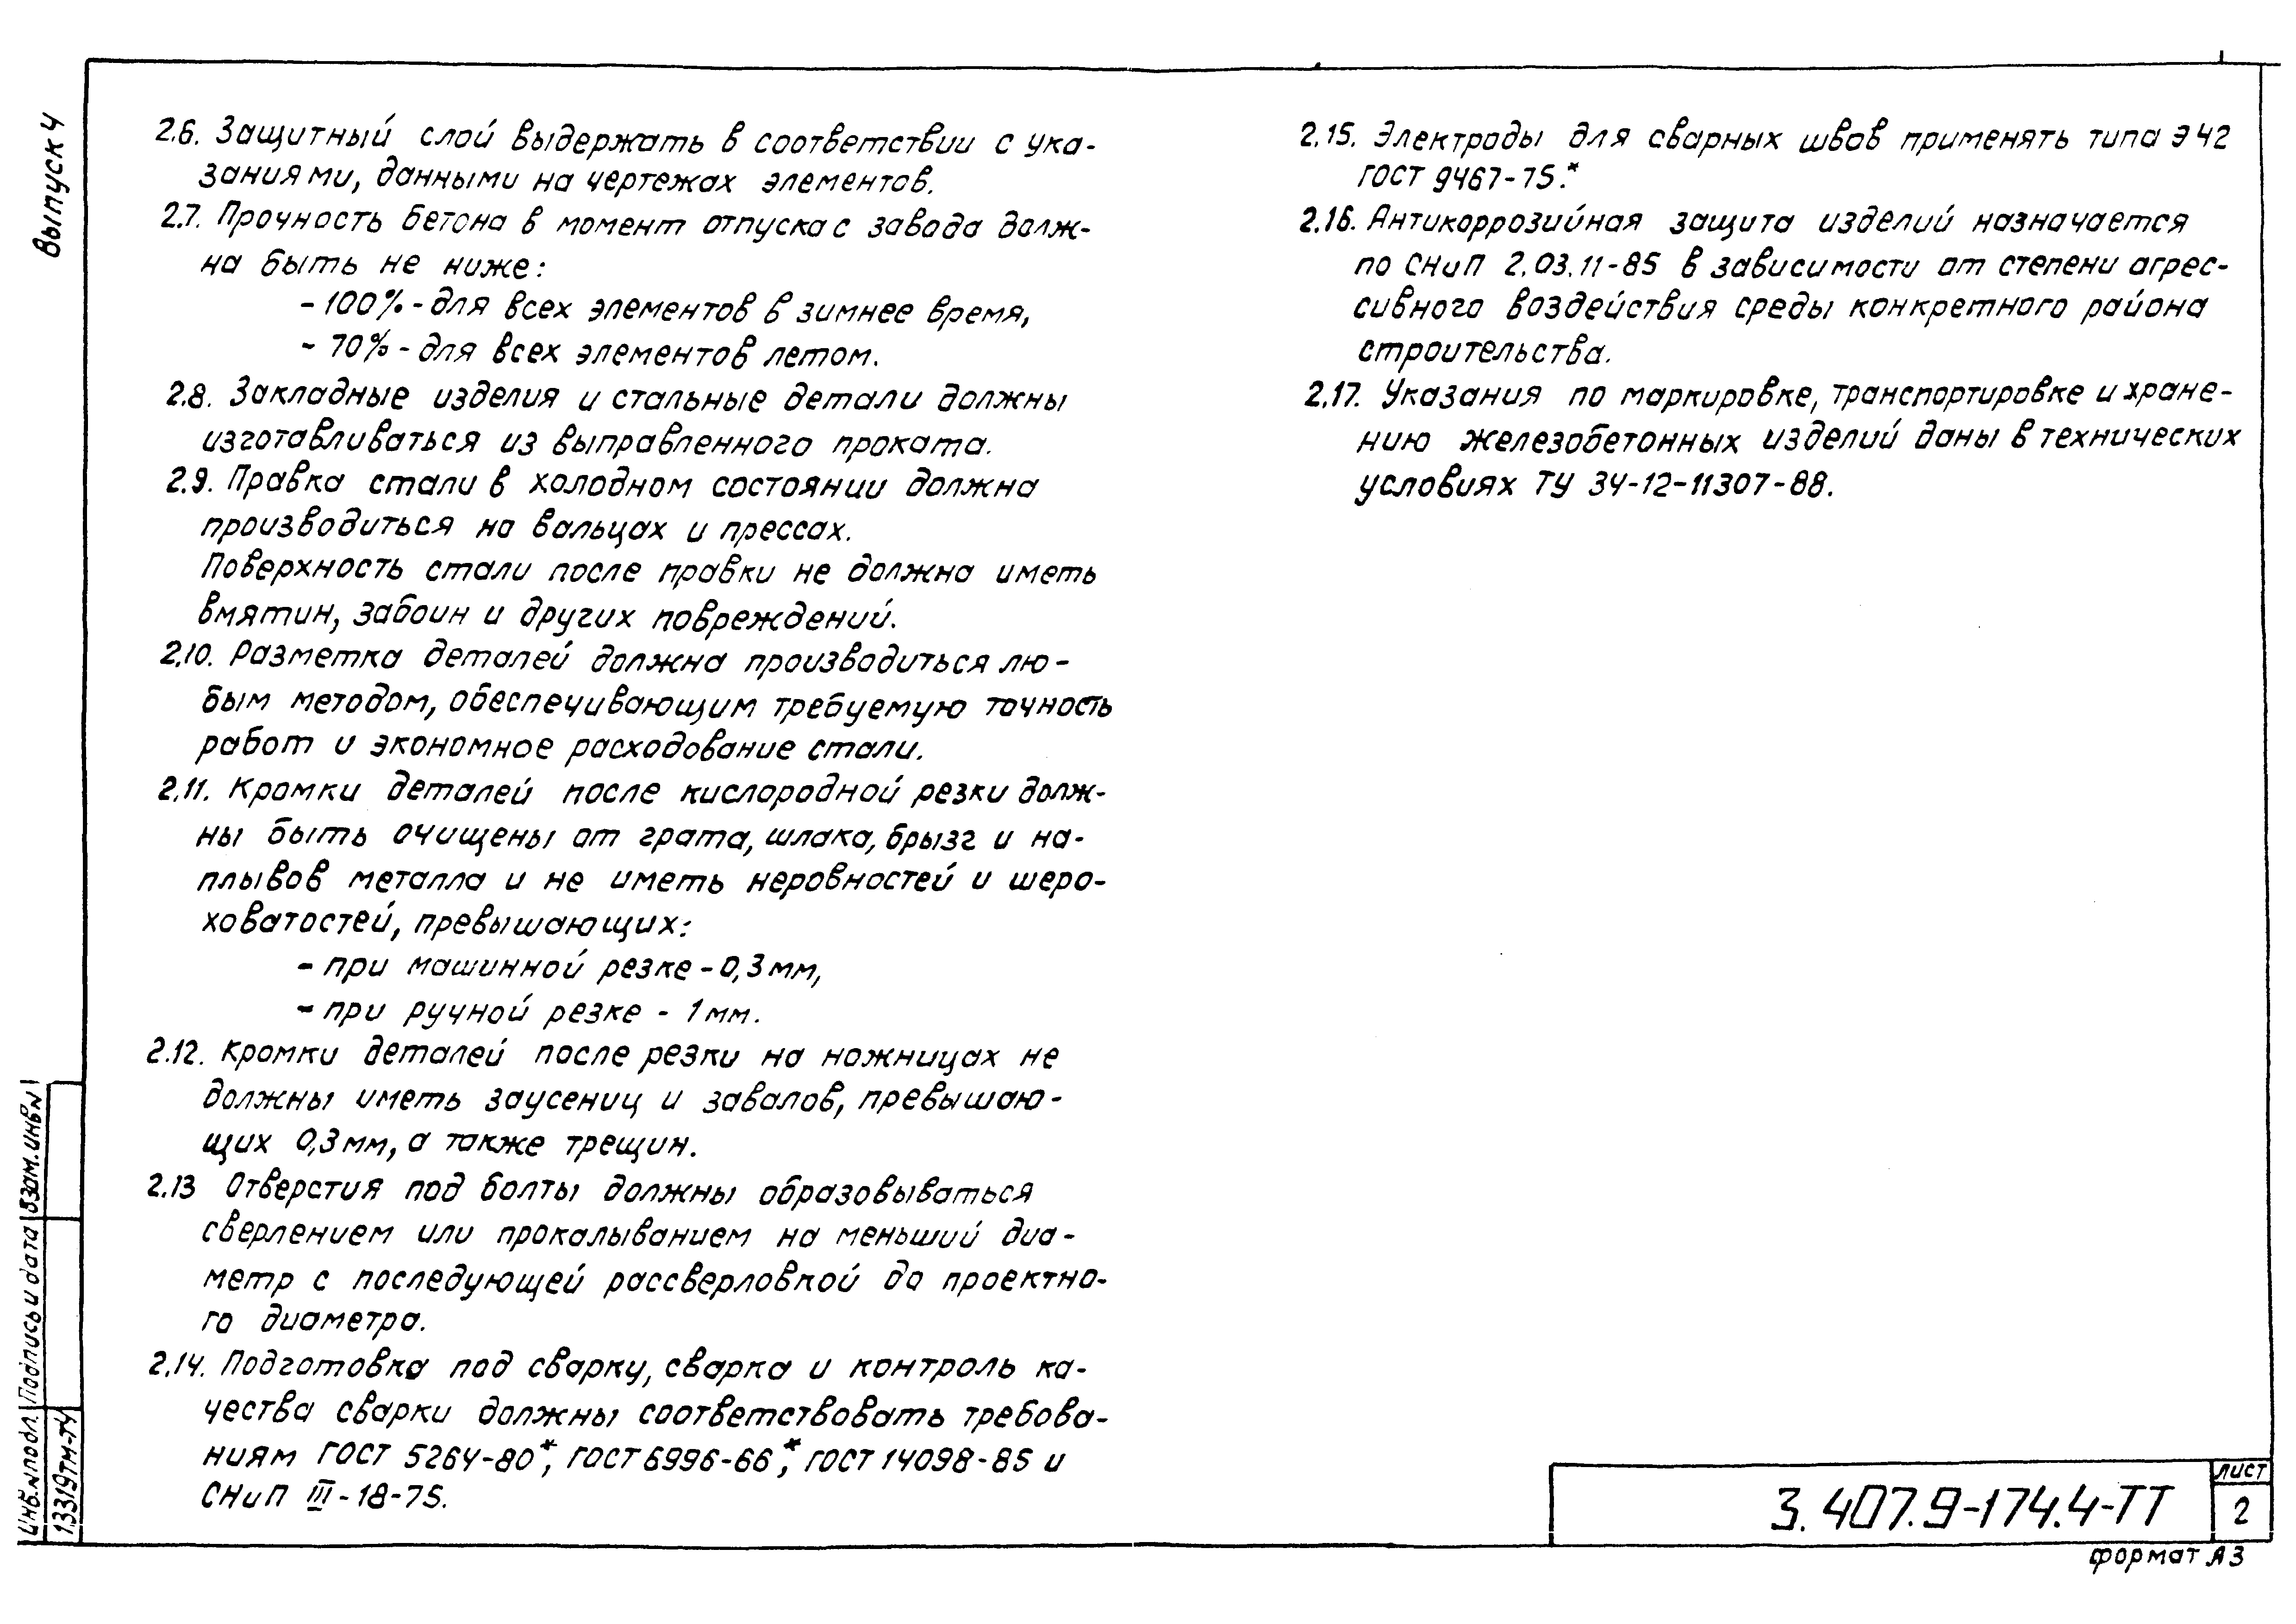 Выпуск 4
2.6. Защитный слой выдержать в соответствии с ука-
заниями, данными на чертежах элементов.
2.7. Прочность бетона в момент отпуска с завода долж-
на быть не ниже:
- 100% - для всех элементов в зимнее время,
- 70% - для всех элементов летом.
2.8. Закладные изделия и стальные детали должны
изготавливаться из выправленного проката.
2.9. Правка стали в холодном состоянии должна
производиться на вальцах и прессах.
Поверхность стали после правки не должна иметь
вмятин, забоин и других повреждений.
2.10. Разметка деталей должна производиться лю-
бым методом, обеспечивающим требуемую точность
работ и экономное расходование стали.
2.11. Кромки деталей после кислородной резки долж-
ны быть очищены от грата, шлака, брызг и на-
плывов металла и не иметь неровностей и шеро-
ховатостей, превышающих:
- при машинной резке - 0,3 мм,
- при ручной резке - 1 мм.
2.12. Кромки деталей после резки на ножницах не
должны иметь заусениц и завалов, превышаю-
щих 0,3 мм, а также трещин.
2.13 Отверстия под болты должны образовываться
сверлением или прокалыванием на меньший диа-
метр с последующей рассверловкой до проектно-
го диаметра.
2.14. Подготовка под сварку, сварка и контроль ка-
чества сварки должны соответствовать требова-
ниям ГОСТ 5264-80*, ГОСТ 6996-66*, ГОСТ 14098-85 и
СНиП III-18-75.
2.15. Электроды для сварных швов применять типа Э42
ГОСТ 9467-75.*
2.16. Антикоррозийная защита изделий назначается
по СНиП 2.03.11-85 в зависимости от степени агрес-
сивного воздействия среды конкретного района
строительства.
2.17. Указания по маркировке, транспортировке и хране-
нию железобетонных изделий даны в технических
условиях ТУ 34-12-11307-88.
Инв.N подл. Подпись и дата Взам. инв N
13319тм-т4
3.407.9-174.4-ТТ
лист
2
формат А3